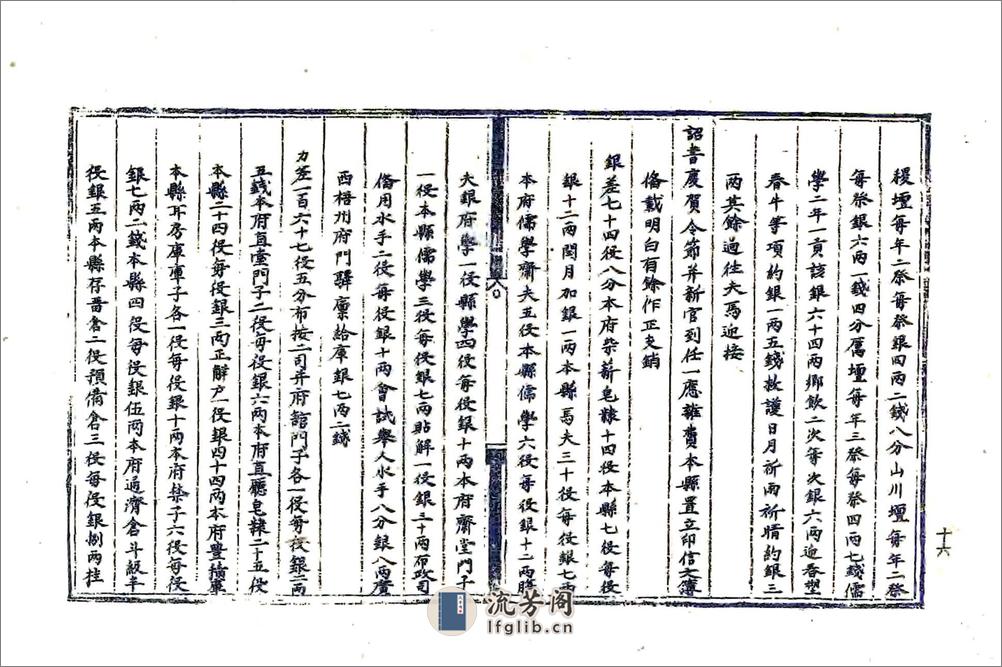 稷壇每年二祭每祭銀四兩二錢八分山川壇每年二祭
每祭銀六兩一錢四分厲壇每年三祭每祭四兩七錢儒
學二年一貢該銀六十四兩鄉飲二次每次銀六兩迎春塑
春牛等項約銀一兩五錢救護日月祈雨祈晴約銀三
兩其餘過往夫馬迎接
詔書慶賀令節并新官到任一應雜費本縣置立印信文簿
俻載明白有餘作正支銷
銀差七十四役八分本府柴薪皂隸十四役本縣七役每役
銀十二兩閏月加銀一兩本縣馬夫三十役每役銀七兩
本府儒學齋夫五役本縣儒學六役每役銀十二兩膳
夫銀府學一役縣學四役每役銀十兩本府齋堂門子
一役本縣儒學三役每役銀七兩貼解一役銀三十兩布政司
俻用水手二役每役銀十兩會試舉人水手八分銀八兩廣
西梧州府門驛稟給庫銀七兩二錢
力差一百六十七役五分布按二司并府舘門子各一役每役銀二兩
五錢本府直堂門子二役每役銀六兩本府直廳皂隸二十五役
本縣二十四役每役銀三兩正解户一役銀四十四兩本府豐積庫
本縣耳房庫庫子各一役每役銀十兩本府禁子六役每役
銀七兩二錢本縣四役每役銀伍兩本府通濟倉斗級半
役銀五兩本縣存晋倉二役預備倉三役每役銀捌兩柱
十六
流芳阁
lfglib.cn